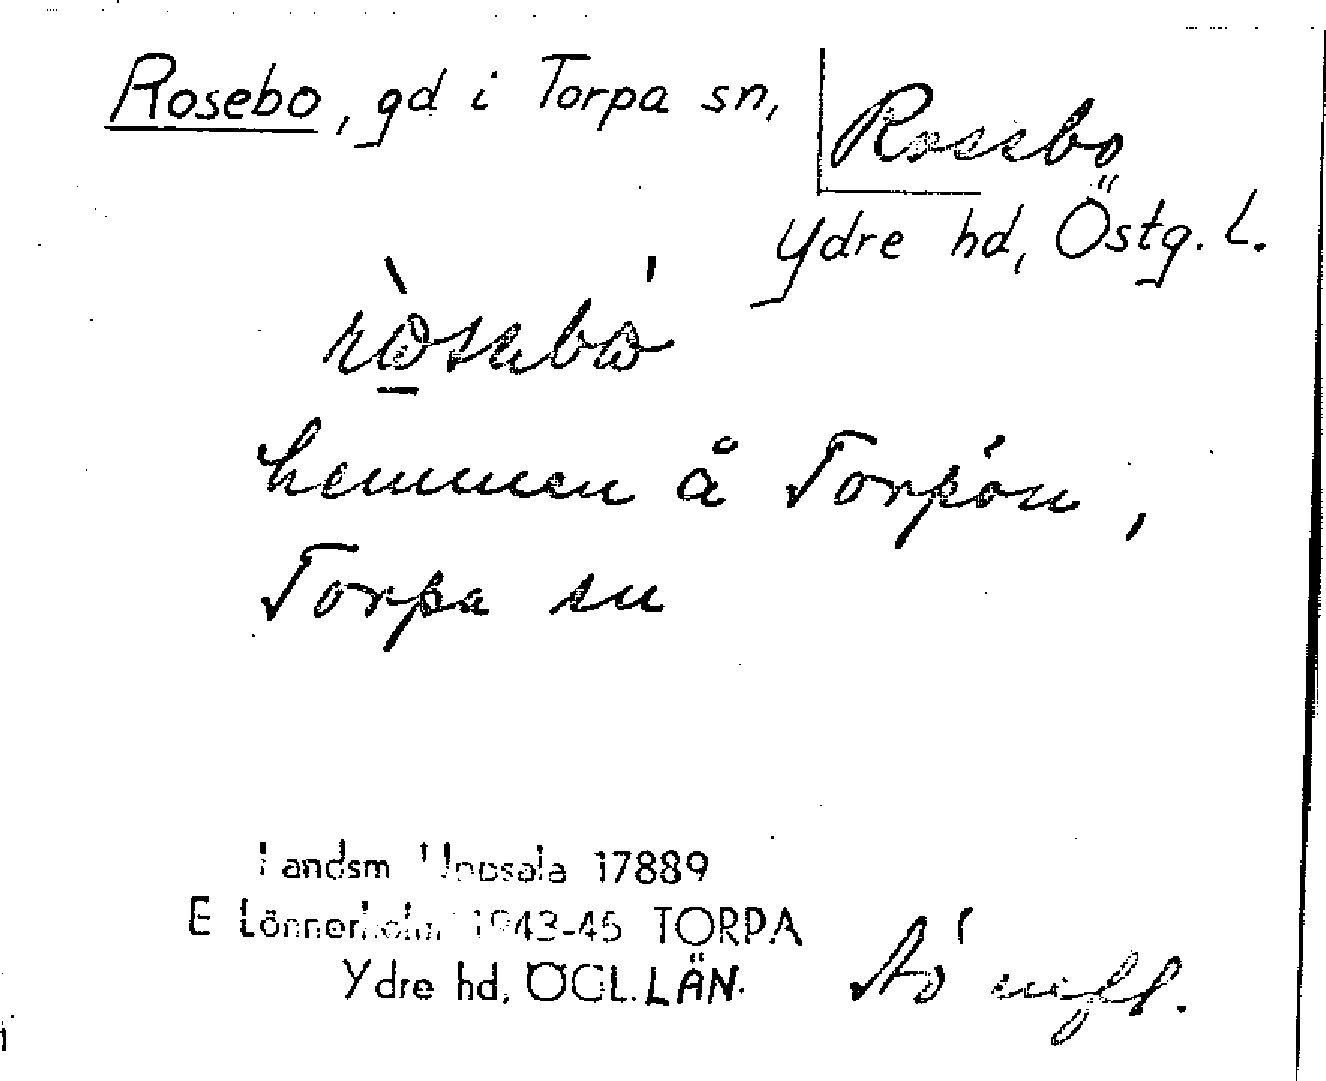 Rosebo, gd i Torpa sn,
Rosebo
Ydre hd, Östg. L.
hemmen å Torpön,
Torpa sn
Landsm Uppsala 17889
E Lönnerholm 1943-45 TORPA
Ydre hd. ÖGL. LÄN.